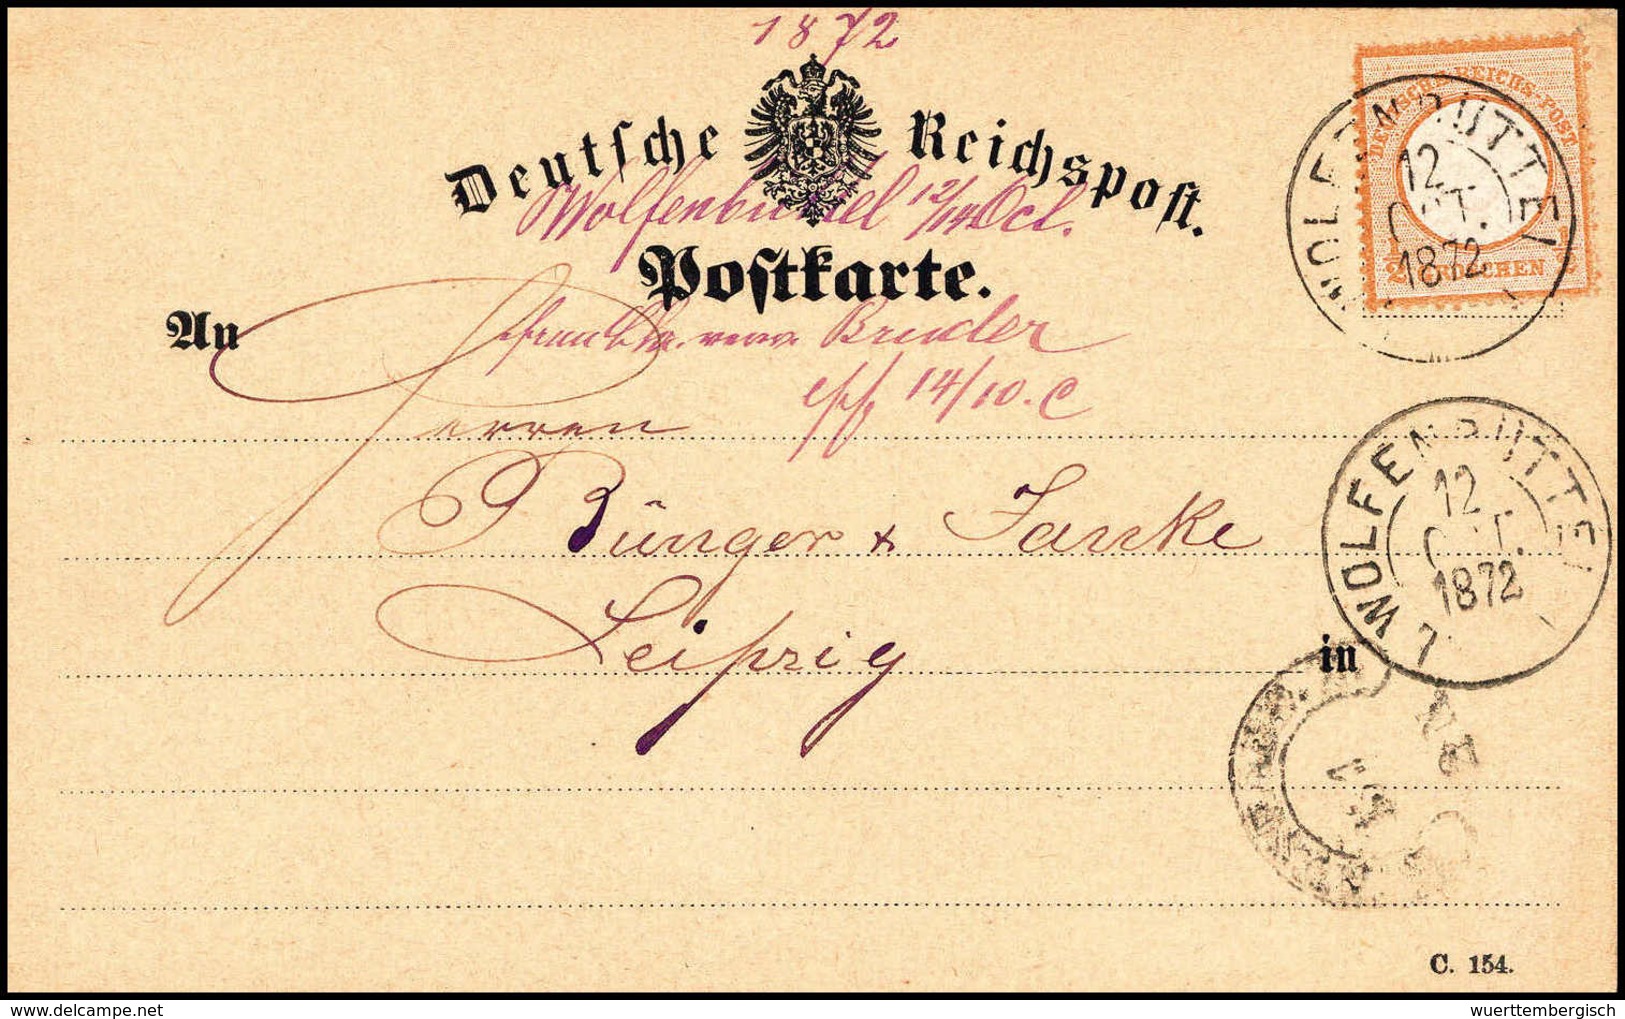 1872
Deutsche Reichspost.
Wolfenbüttel 12/14 Oct.
Postkarte.
An
Bruder
eff. 14/10. C
Herren
Bünger & Janke
Leipzig
in
DEUTSCHE REICHS-POST
1/2 GROSCHEN 1/2
WOLFENBÜTTEL
12
OCT.
1872
WOLFENBÜTTEL
12
OCT.
1872
7
C. 154.
delcampe.net
wuerttembergisch